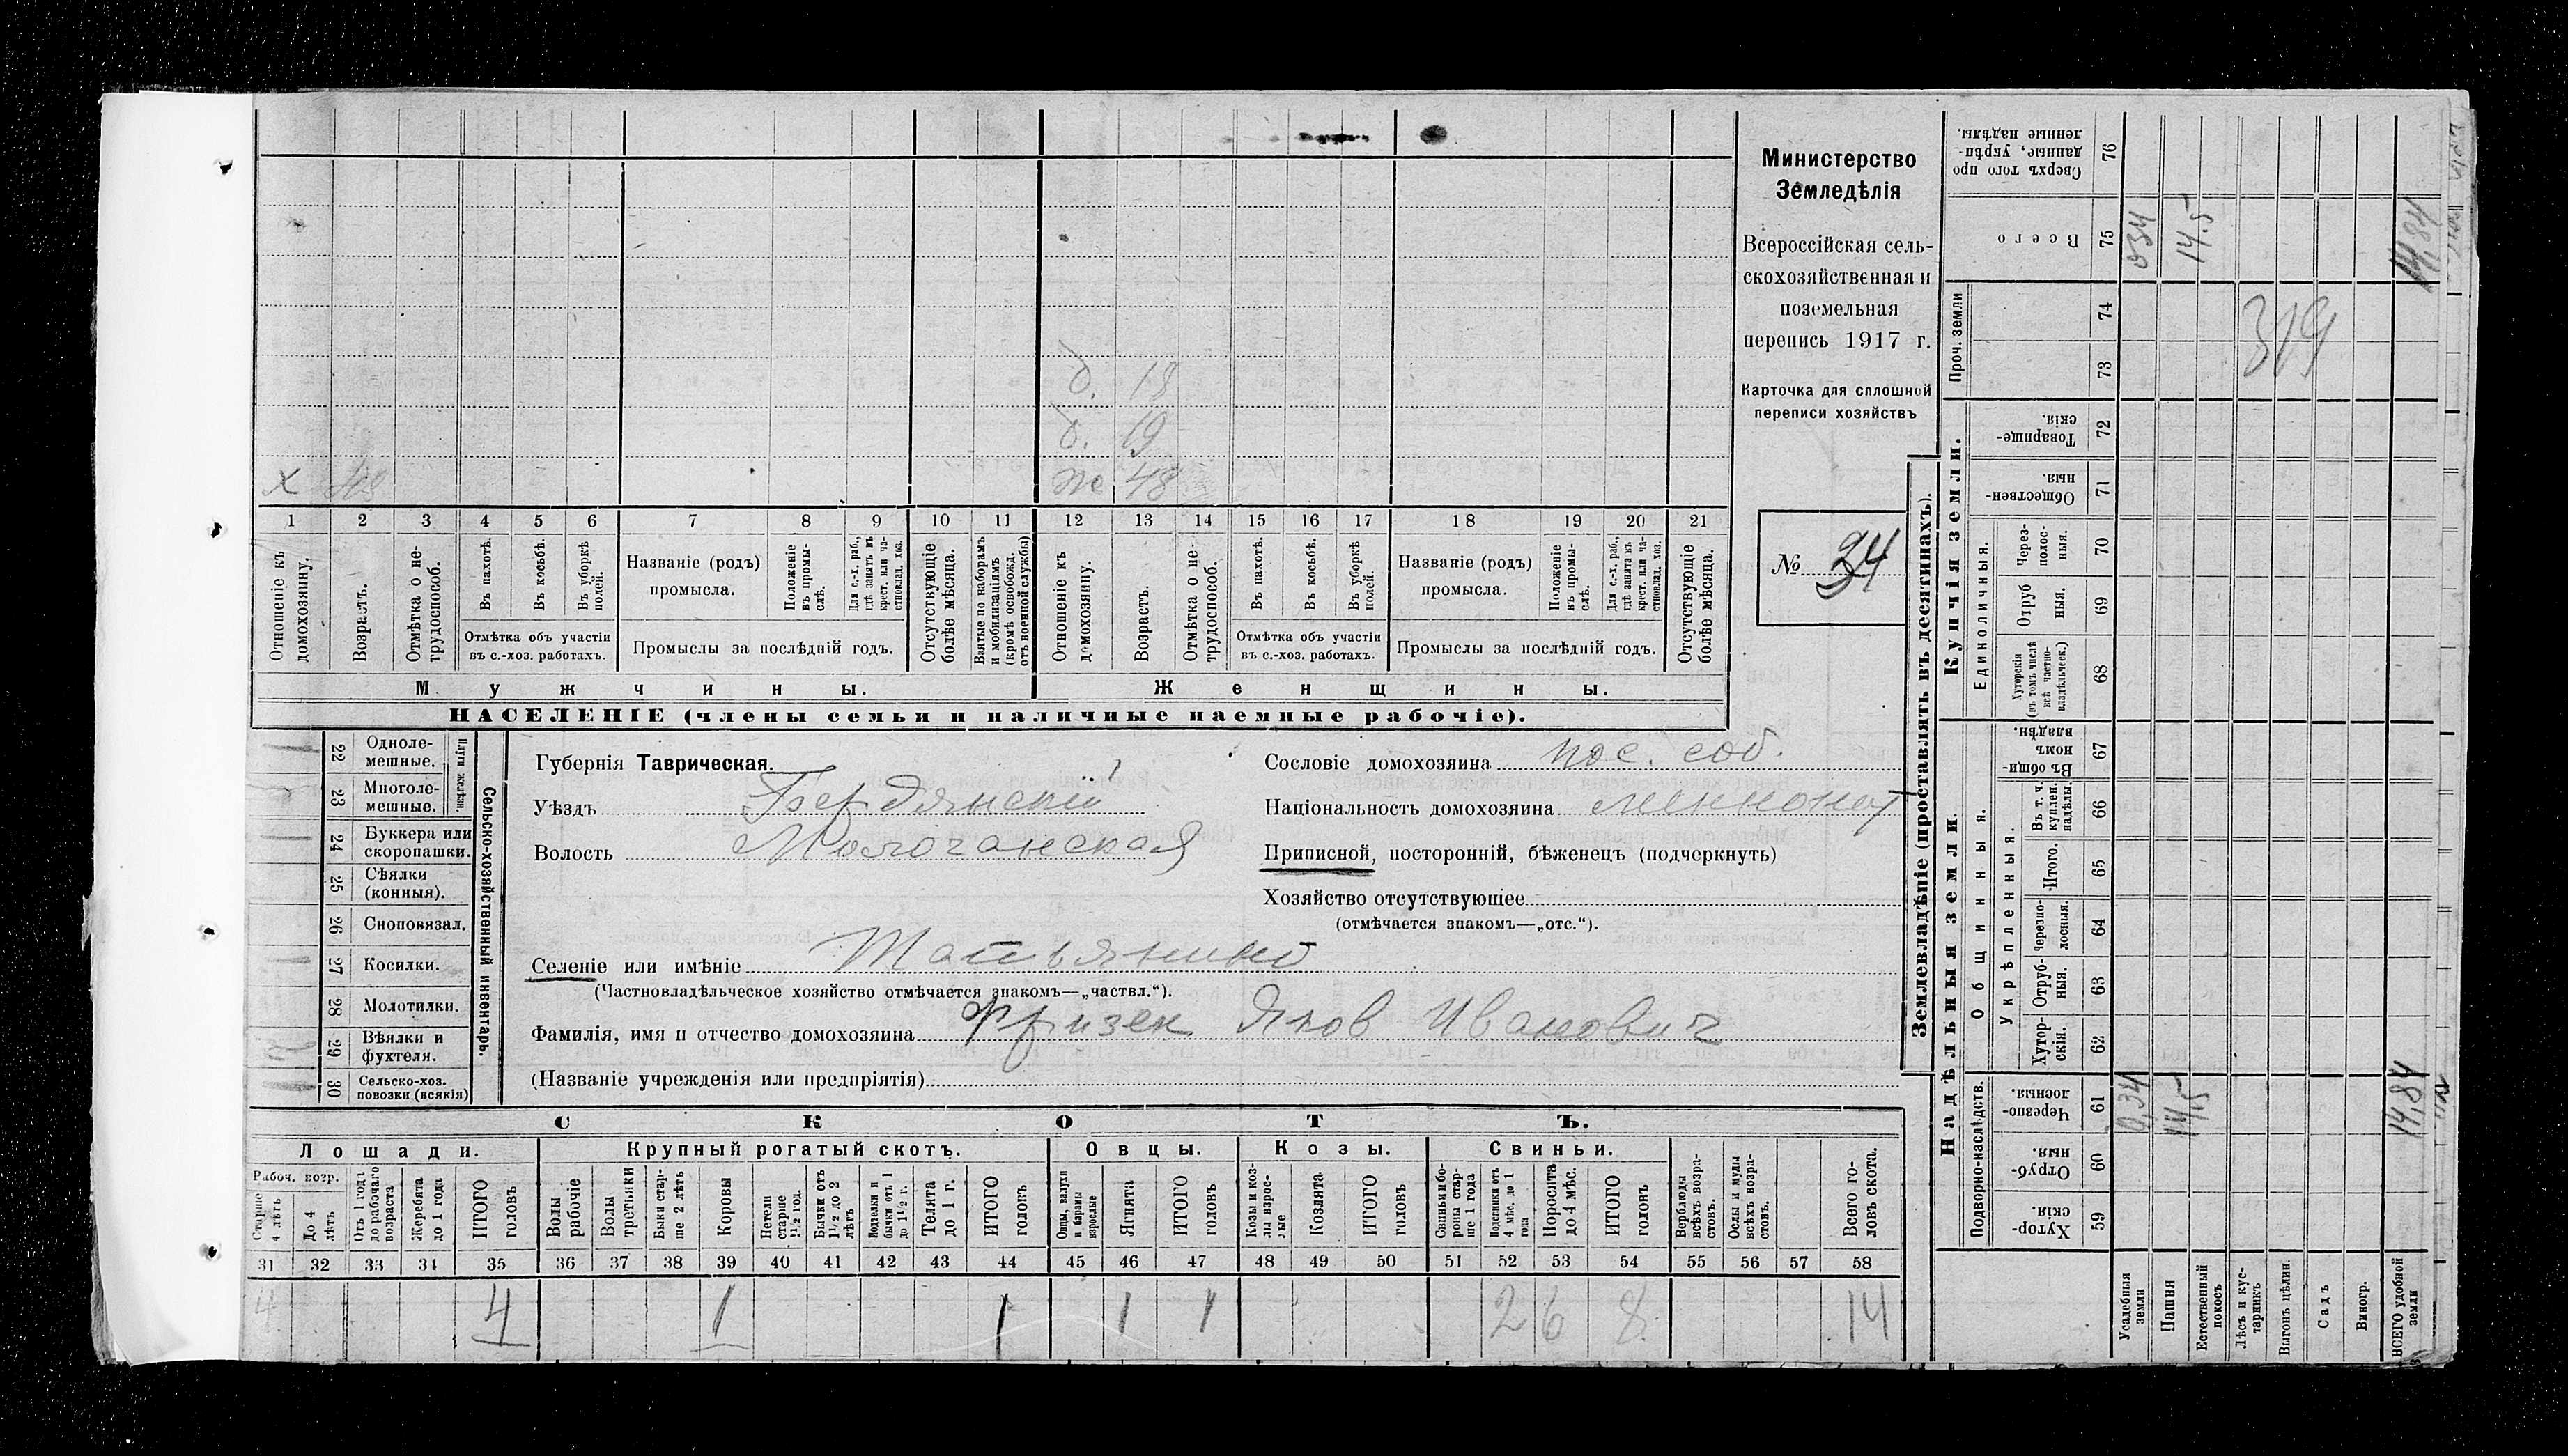 Министерство
Земледѣлія
Всероссійская сель-
скохозяйственная и
поземельная
перепись 1917 г.
Карточка для сплошной
переписи хозяйствъ
№ 34
д. 18
д. 19
х 48
же 48
1 2 3 4 5 6 7 8 9 10 11 12 13 14 15 16 17 18 19 20 21
Отношеніе къ
домохозяину.
Возрастъ.
Отмѣтка о не-
трудоспособ.
Въ пахотѣ.
Въ косьбѣ.
Въ уборкѣ
полей.
Отмѣтка объ участіи
въ с.-хоз. работахъ.
Названіе (родъ)
промысла.
Положеніе
въ промы-
слѣ.
Для с.-х. раб.,
гдѣ занятъ въ
крест. или ча-
стновлад. хоз.
Промыслы за послѣдній годъ.
Отсутствующіе
болѣе мѣсяца.
Взятые по наборамъ
и мобилизаціямъ
(кромѣ освобожд.
отъ военной службы)
Отношеніе къ
домохозяину.
Возрастъ.
Отмѣтка о не-
трудоспособ.
Въ пахотѣ.
Въ косьбѣ.
Въ уборкѣ
полей.
Отмѣтка объ участіи
въ с.-хоз. работахъ.
Названіе (родъ)
промысла.
Положеніе
въ промы-
слѣ.
Для с.-х. раб.,
гдѣ занята въ
крест. или ча-
стновлад. хоз.
Промыслы за послѣдній годъ.
Отсутствующіе
болѣе мѣсяца.
Мужчины.
Женщины.
НАСЕЛЕНІЕ (члены семьи и наличные наемные рабочіе).
Сельско-хозяйственный инвентарь.
Плуги желѣзн.
22 Одноле-
мешные.
23 Многоле-
мешные.
24 Буккера или
скоропашки.
25 Сѣялки
(конныя).
26 Сноповязал.
27 Косилки.
28 Молотилки.
29 Вѣялки и
фухтеля.
30 Сельско-хоз.
повозки (всякія)
Губернія Таврическая.
Уѣздъ Бердянскій
Волость Молочанская
Селеніе или имѣніе
(Частновладѣльческое хозяйство отмѣчается знакомъ—„частвл.“).
Фамилія, имя и отчество домохозяина Фризен Яков Иванович
(Названіе учрежденія или предпріятія)
Сословіе домохозяина пос. соб.
Національность домохозяина меннонит
Приписной, посторонній, бѣженецъ (подчеркнуть)
Хозяйство отсутствующее
(отмѣчается знакомъ—„отс.“).
СКОТЪ.
Лошади.
Крупный рогатый скотъ.
Овцы.
Козы.
Свиньи.
Рабоч. возр.
Старше
4 лѣтъ
До 4
лѣтъ
Отъ 1 года
до рабочаго
возраста
Жеребята
до 1 года
ИТОГО
головъ
Волы
рабочіе
Волы
третьяки
Быки стар-
ше 2 лѣтъ
Коровы
Нетели
старше
1½ год.
Бычки отъ
1½ до 2
лѣтъ
Подтелки и
бычки отъ 1
до 1½ г.
Телята
до 1 г.
ИТОГО
головъ
Овцы, валухи
и бараны
взрослые
Ягнята
ИТОГО
головъ
Козы и коз-
лы взрос-
лые
Козлята
ИТОГО
головъ
Свиньи и бо-
ровы стар-
ше 1 года
Подсвинки отъ
4 мѣс. до 1
года
Поросята
до 4 мѣс.
ИТОГО
головъ
Верблюды
всѣхъ возра-
стовъ.
Ослы и мулы
всѣхъ возра-
стовъ.
Всего го-
ловъ скота.
31 32 33 34 35 36 37 38 39 40 41 42 43 44 45 46 47 48 49 50 51 52 53 54 55 56 57 58
4 4 1 1 1 1 2 6 8 14
Землевладѣніе (проставлять въ десятинахъ).
Надѣльныя земли.
Купчія земли.
Проч. земли
Подворно-наслѣдств.
Общинныя.
Укрѣпленныя.
Единоличныя.
Хутор-
скія.
59
Отруб-
ныя.
60
Черезпо-
лосныя.
61
Хутор-
скія.
62
Отруб-
ныя.
63
Черезпо-
лосныя.
64
Итого.
65
Въ т. ч.
куплен.
надѣлы.
66
Въ общи-
номъ
владѣн.
67
Хуторскія
(въ томъ числѣ
всѣ частно-
владѣльческ.)
68
Отруб
ныя.
69
Через-
полос-
ныя.
70
Обществен-
ныя
71
Товарище-
скія.
72
73
74
Всего
75
Сверхъ того про
данные, укрѣп-
ленные надѣлы.
76
Усадебныя
земли
0,34
034
Пашня
14,5
14.5
Естественный
покосъ
Лѣсъ и кус-
тарникъ
Выгонъ цѣлин.
Садъ
Виногр.
ВСЕГО удобной
земли
14,84
14,84
319